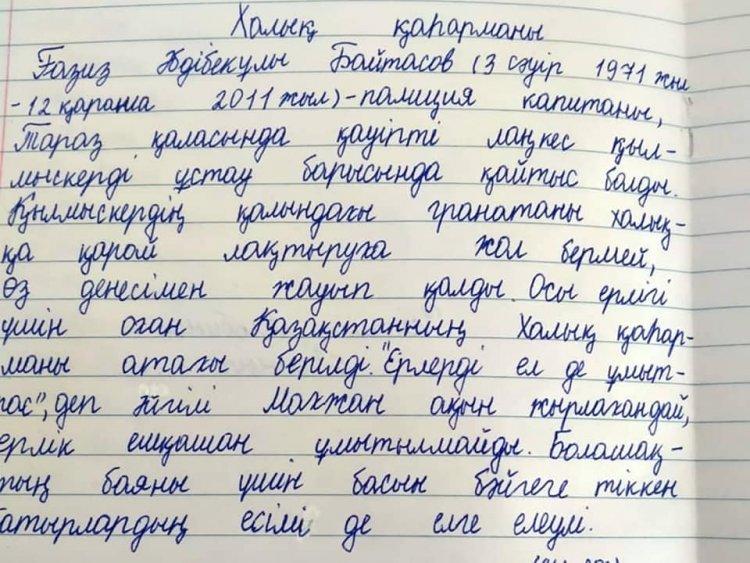 Халық қаһарманы
Ғазиз Әдібекұлы Байтасов (3 сәуір 1971 жыл
-12 қараша 2011 жыл) - полиция капитаны,
Тараз қаласында қауіпті лаңкес қыл-
мыскерді ұстау барысында қайтыс болды.
Қылмыскердің қолындағы гранатаны халық-
қа қарай лақтыруға жол бермей,
өз денесімен жауып қалды. Осы ерлігі
үшін оған Қазақстанның Халық қаһар-
маны атағы берілді. "Ерлерді ел де ұмыт-
пас", деп әйгілі Мағжан ақын жырлағандай,
ерлік ешқашан ұмытылмайды. Болашақ-
тың баяны үшін басын бәйгеге тіккен
батырлардың есімі де елге елеулі.